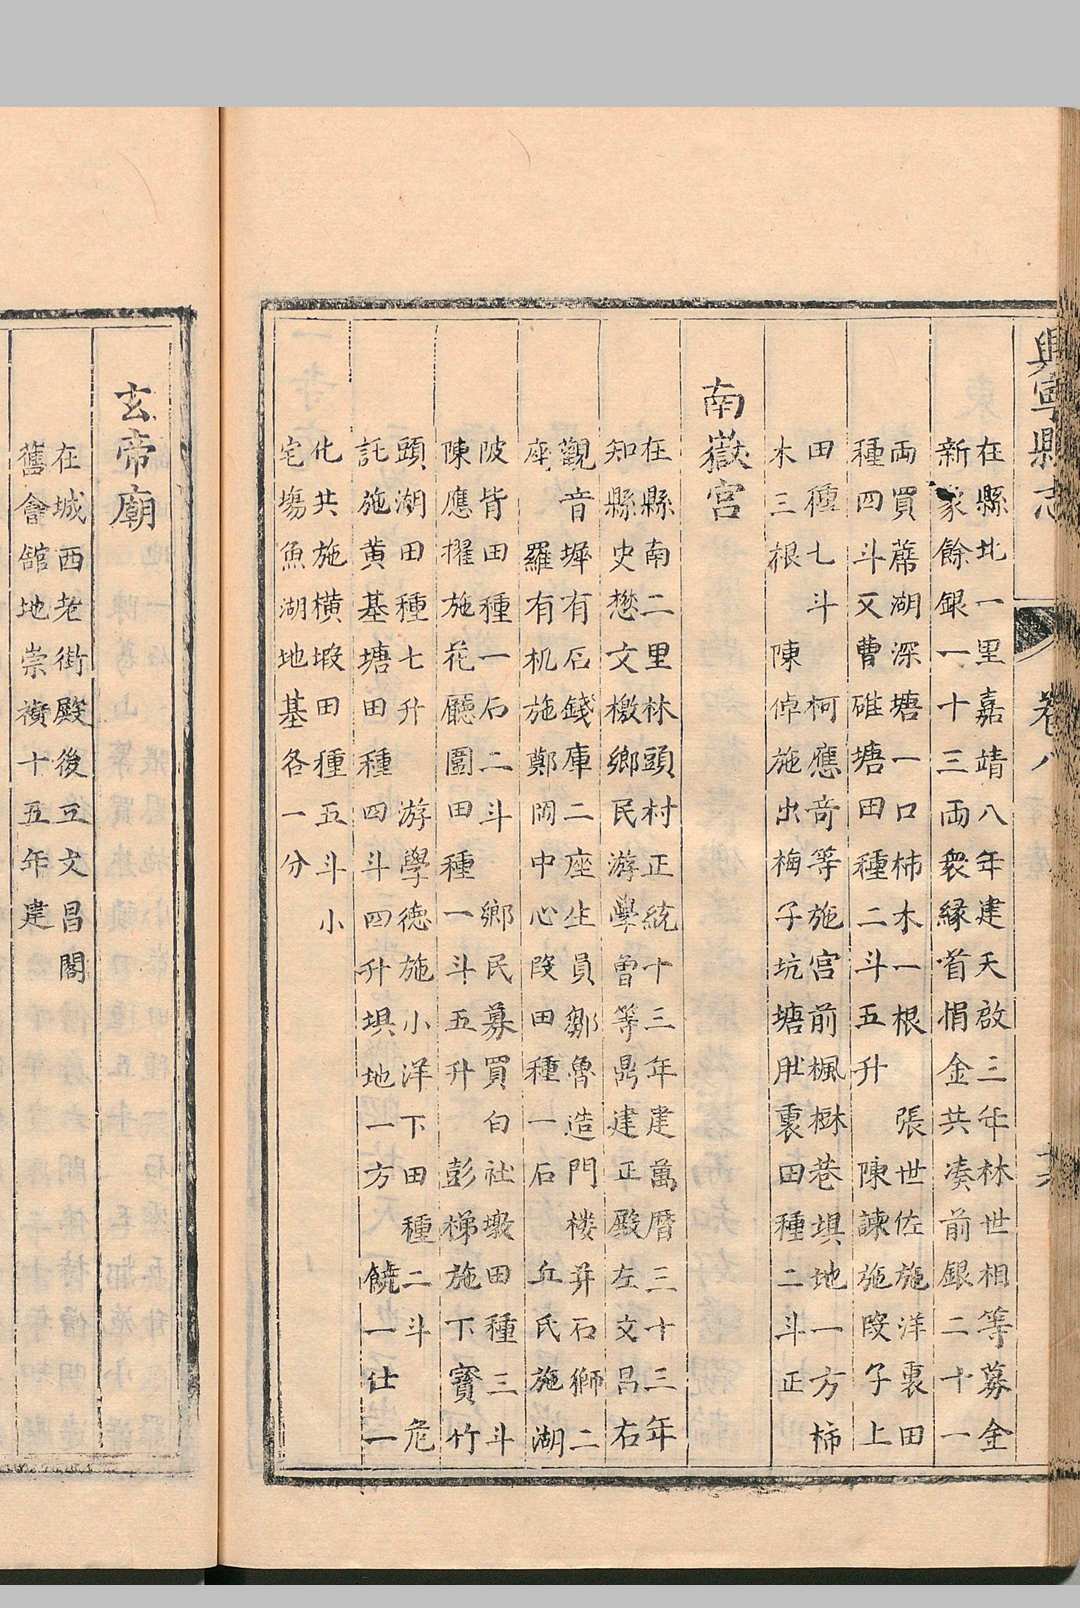 興寧縣志 卷八 十六
在縣北一里嘉靖八年建天啟三年林世相等募金
新家餘銀一十三両衆縁首捐金共凑前銀二十一
両買蓆湖深塘一口柿木一根 張世佐施洋裏田
種四斗又曹碓塘田種二斗五升 陳諫施陂子上
田種七斗 柯應竒等施宫前楓樹巷垻地一方柿
木三根 陳倬施出梅子坑塘肚裏田種二斗正
南嶽宮
在縣南二里林頭村正統十三年建萬曆三十三年
知縣史懋文檄鄉民游學曾等鼎建正殿左文昌右
觀音墀有石錢庫二座生員鄒魯造門楼并石獅二
座 羅有机施鄭岡中心陂田種一石 丘氏施湖
陂背田種一石二斗 鄉民募買白社墩田種三斗
陳應擢施花廳園田種一斗五升 彭梯施下寳竹
頭湖田種七升 游學德施小洋下田種二斗 危
託施黄基塘田種四斗四升垻地一方 饒一仕一
化共施横塅田種五斗小
宅塲魚湖地基各一分
玄帝廟
在城西老街殿後立文昌閣
舊會舘地崇禎十五年建